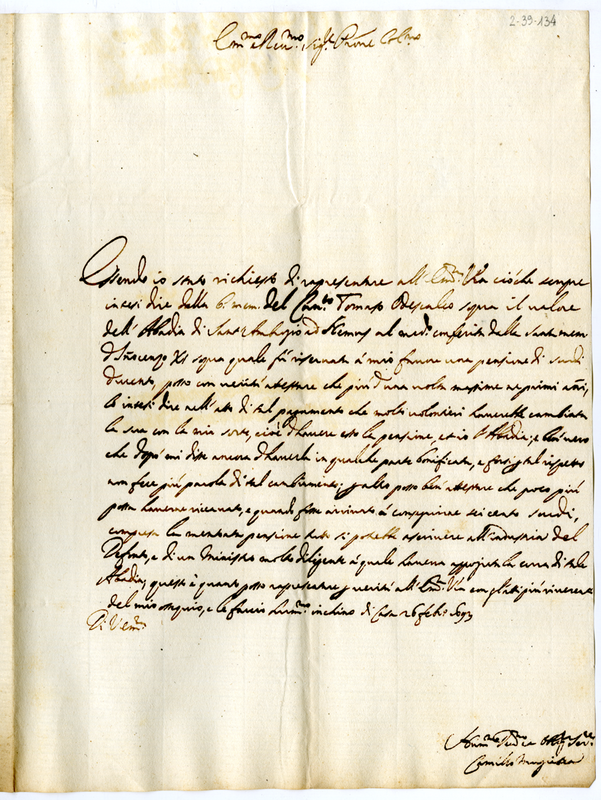 2-39-134
Em.mo e Rev.mo Sig.re Pron.e Col.mo
Essendo io stato richiesto di rapresentare all'Em.za V.ra ciò che sempre
intesi dire dalla b. mem. del Can.co Tomaso Odescalco sopra il valore
dell'Abadia di Sant'Ambrogio ad Nemus al med.o conferita dalla santa mem.
d'Innocenzo XI sopra quale fù riservata à mio favore una pensione di scudi
ducento, posso con verità attestare che più d'una volta massime ne primi anni,
lo intesi dire nell'atto di tal pagamento che molto volontieri haverebbe cambiata
la sua con la mia sorte, cioè d'havere esso la pensione, et io l'Abadia; e ben vero
che dopò mi disse ancora d'haverla in qualche parte bonificata, e forsi p tal rispetto
non fece più parola di tal cambiamento; p altro posso ben attestare che poco più
possa haverne ricavato, e quando fosse arrivato à conseguirne sei cento scudi,
compresa la mentovata pensione tutto si potrebbe ascrivere all'industria del
Defonto, e di un Ministro molto diligente à quale haveva appoggiata la cura di tale
Abadia; questo è quanto posso rapresentare p verità all'Em.za V.ra con gl'atti più riverenti
del mio ossequio, e le faccio hum.mo inchino di Casa 26 feb.o 1693
Di V. Em.za
Hum.mo Dev.mo Obl.mo Ser.re
Camillo